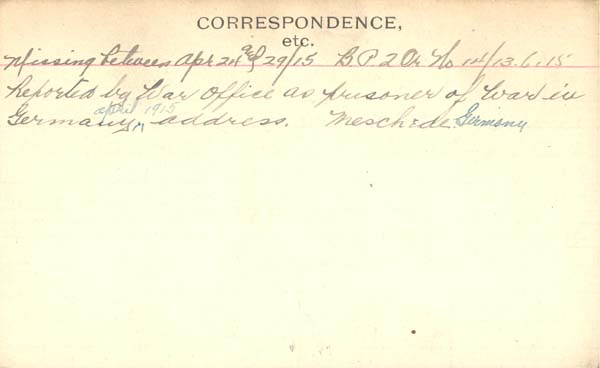 CORRESPONDENCE,
etc.
Missing between Apr 24 & 29/15 B.P. 2 Or No 14/13.6.15
Reported by War Office as prisoner of War in
april 1915
Germany, address. Meschede. Germany